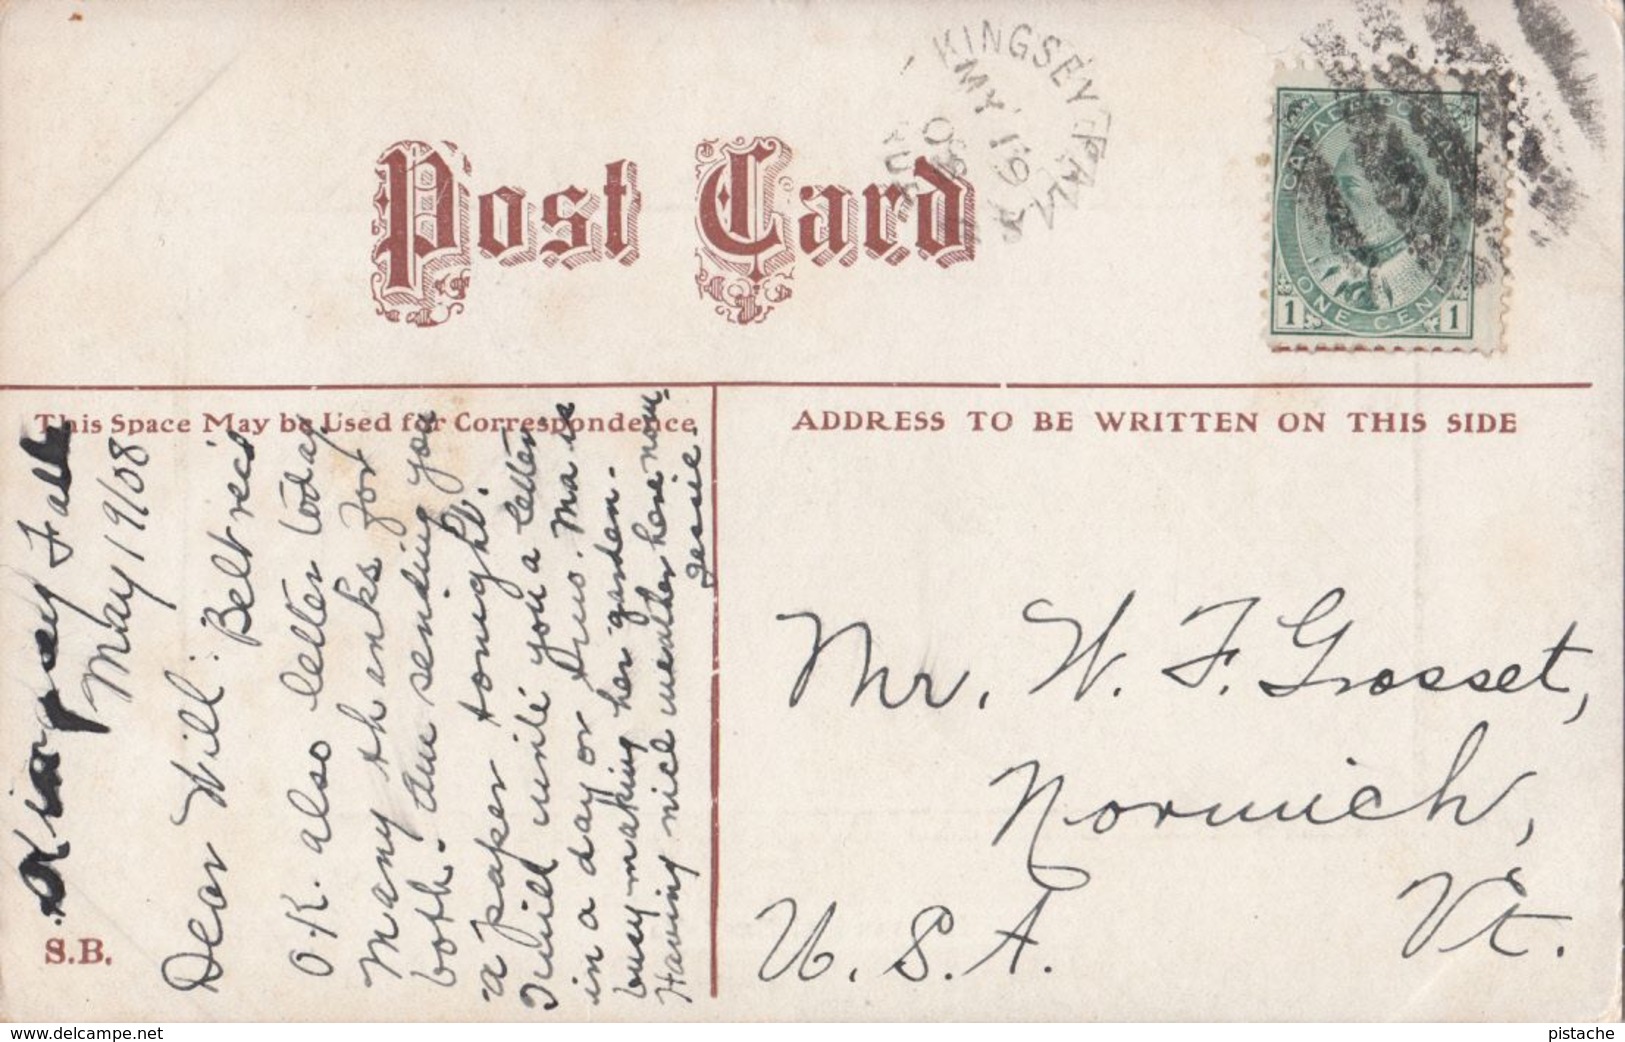 Post Card
KINGSEY FALLS
MY 19
08
QUE
CANADA POSTAGE
1 ONE CENT 1
This Space May be Used for Correspondence
ADDRESS TO BE WRITTEN ON THIS SIDE
Kingsey Falls
May 19/08
Dear Will: Belt rec'd
O.K. also letter today
Many thanks for
both. Am sending you
a paper tonight.
I will write you a letter
in a day or two. Ma is
busy making her garden.
Having nice weather here now.
Jessie.
S.B.
Mr. W. F. Grosset,
Norwich,
Vt.
U.S.A.
www.delcampe.net
pistache